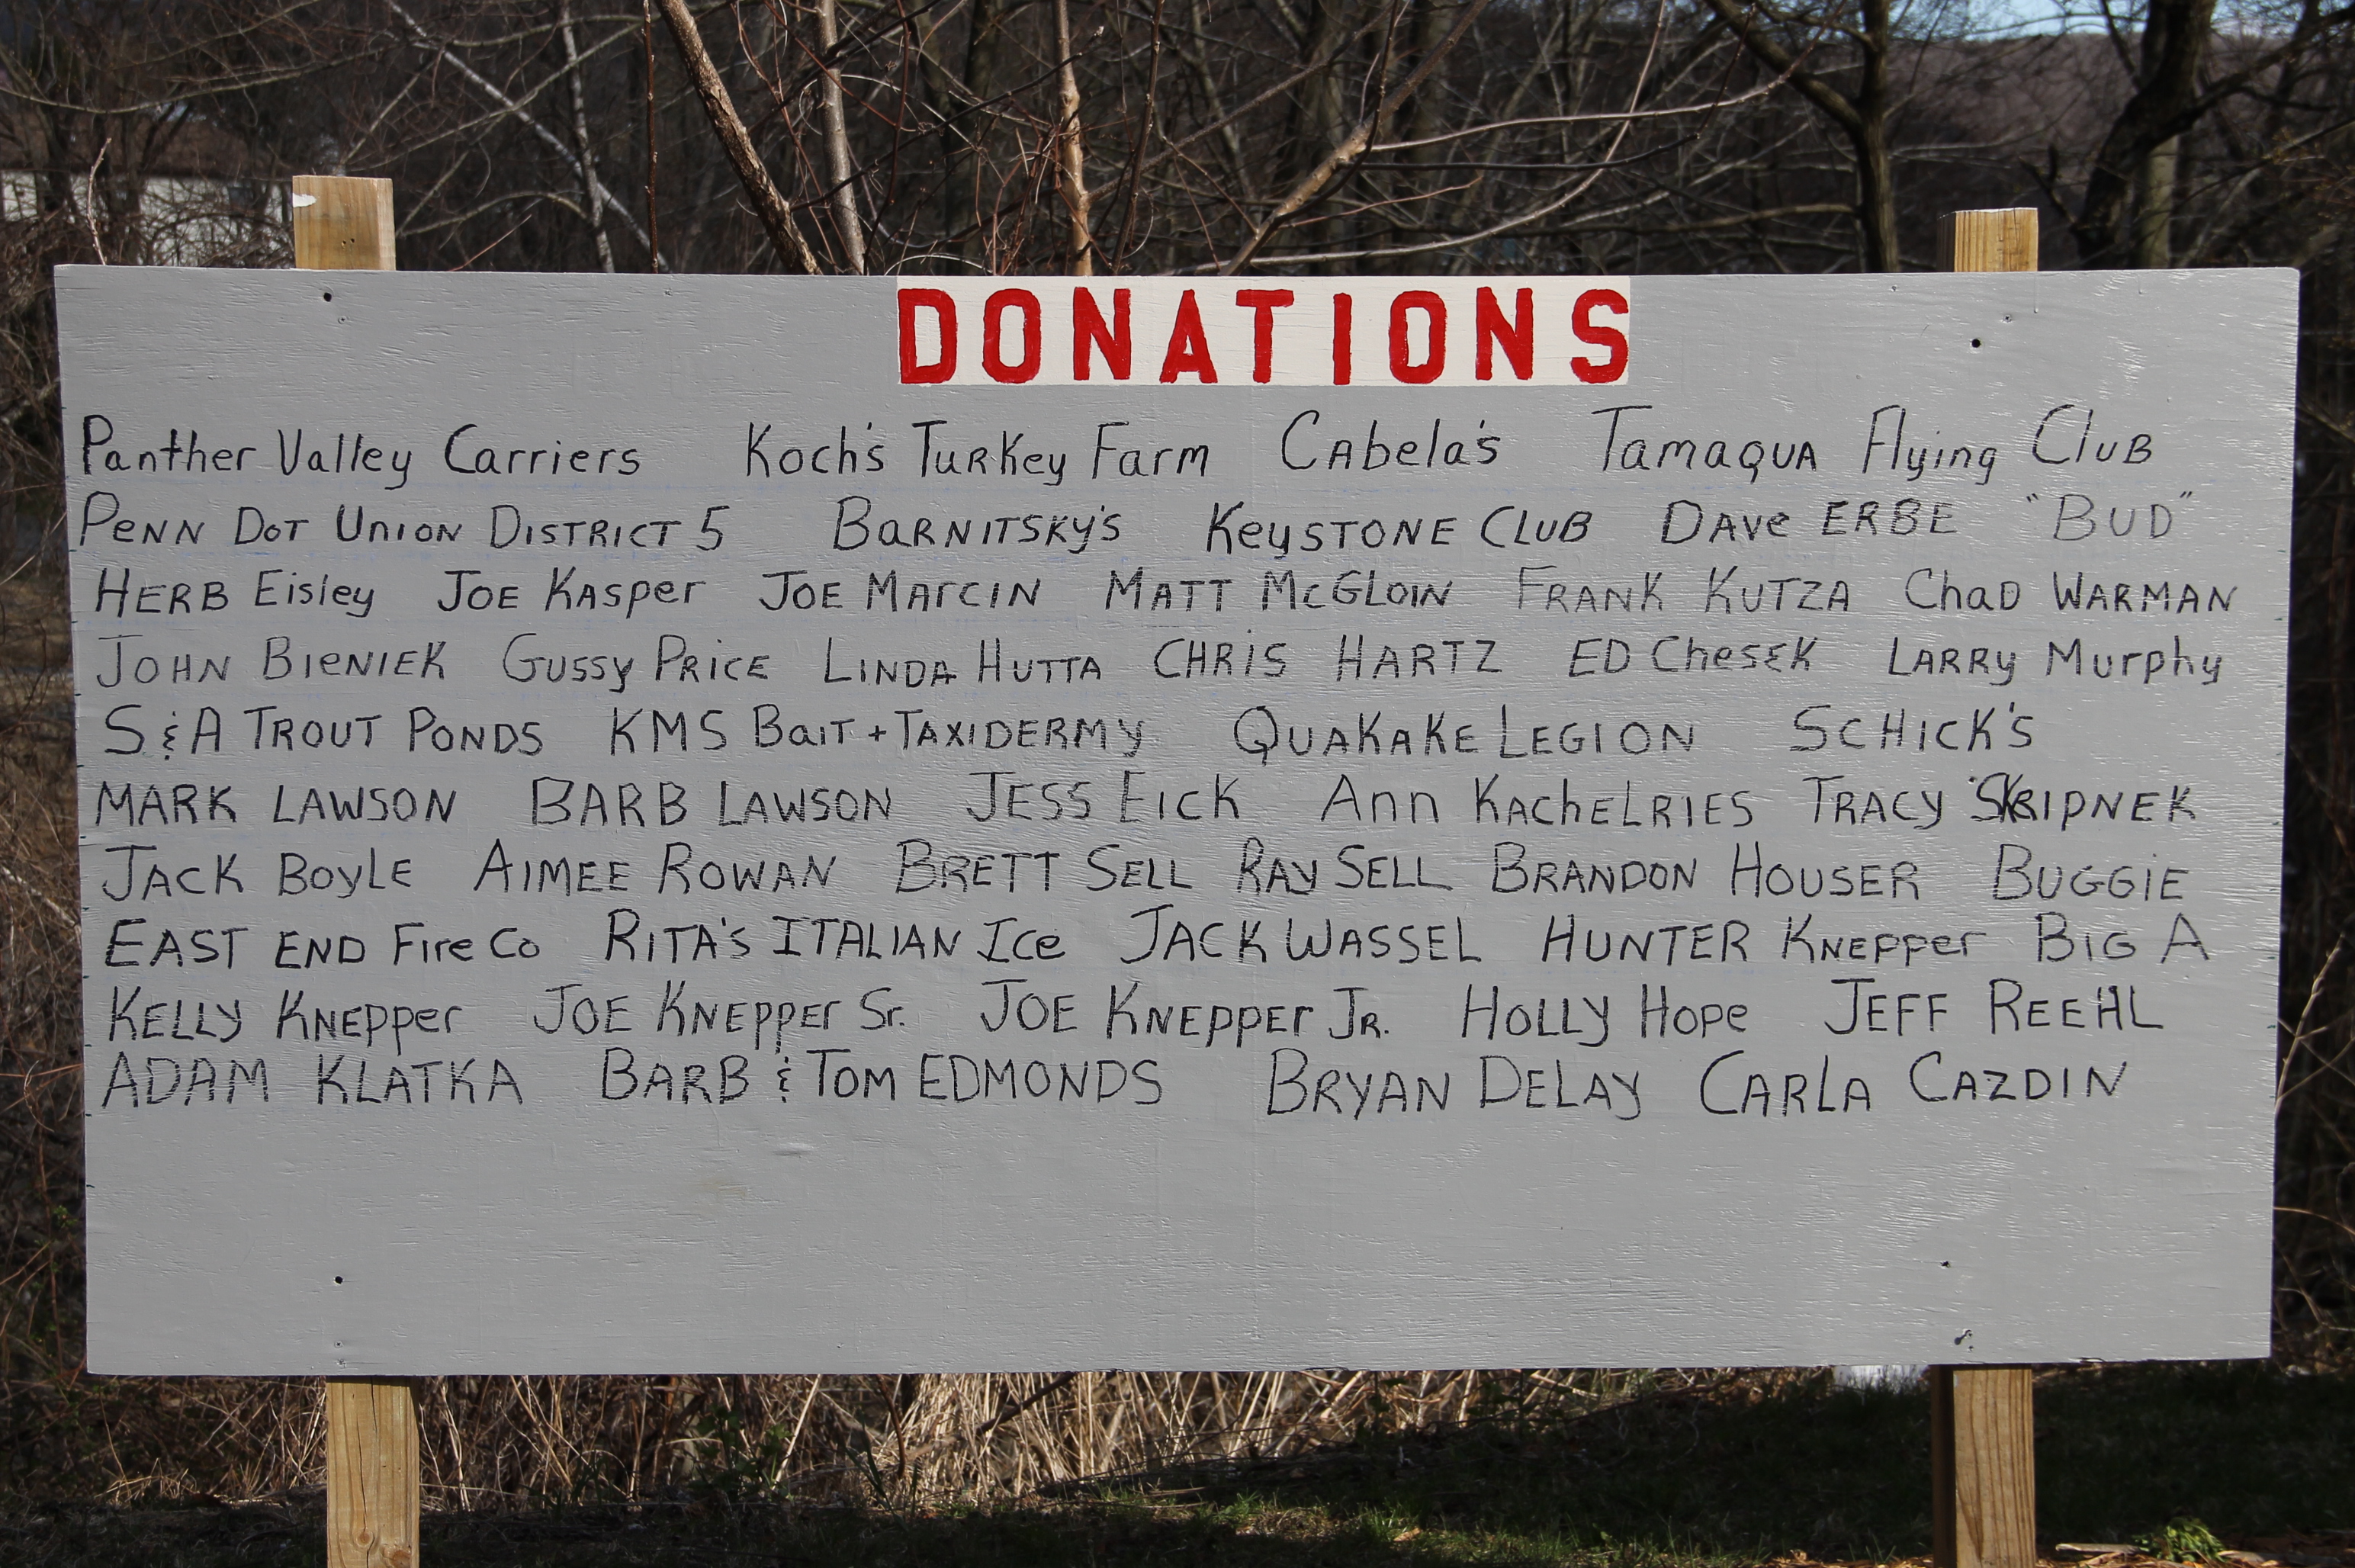 DONATIONS
Panther Valley Carriers Koch's Turkey Farm Cabela's Tamaqua Flying Club
Penn Dot Union District 5 Barnitsky's Keystone Club Dave Erbe "Bud"
Herb Eisley Joe Kasper Joe Marcin Matt McGloin Frank Kutza Chad Warman
John Bieniek Gussy Price Linda Hutta Chris Hartz Ed Chesek Larry Murphy
S & A Trout Ponds KMS Bait + Taxidermy Quakake Legion Schick's
Mark Lawson Barb Lawson Jess Eick Ann Kachelries Tracy Skripnek
Jack Boyle Aimee Rowan Brett Sell Ray Sell Brandon Houser Buggie
East End Fire Co Rita's Italian Ice Jack Wassel Hunter Knepper Big A
Kelly Knepper Joe Knepper Sr. Joe Knepper Jr. Holly Hope Jeff Reehl
Adam Klatka Barb & Tom Edmonds Bryan DeLay Carla Cazdin